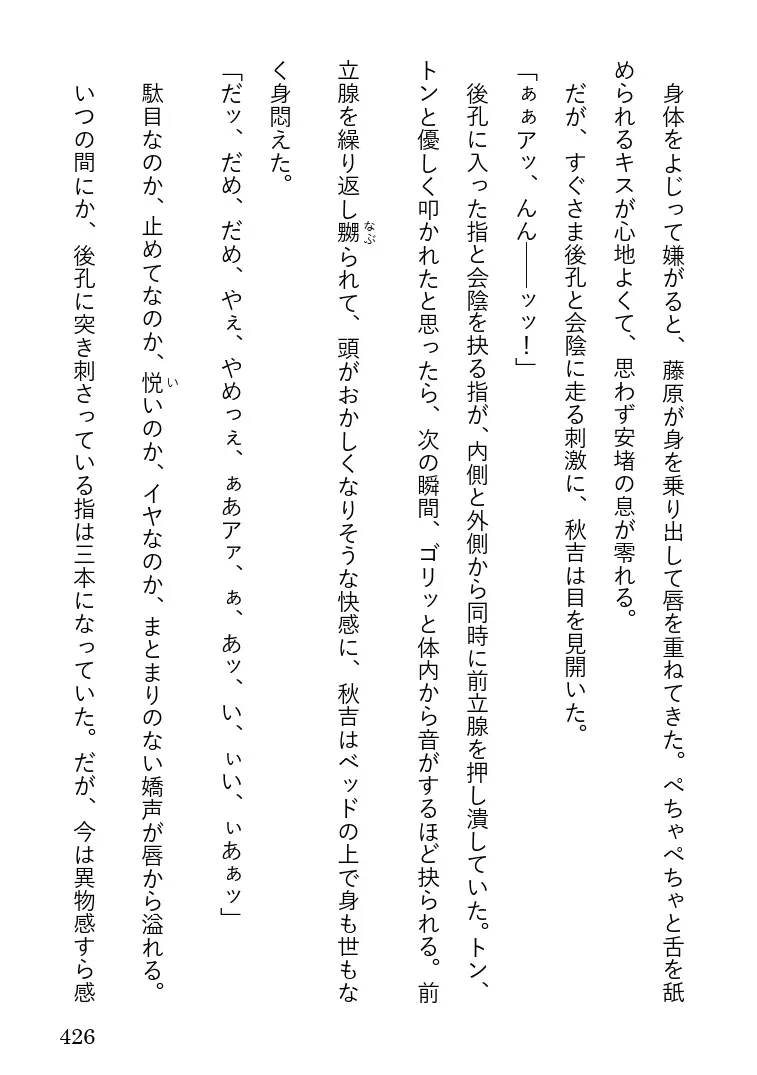 身体をよじって嫌がると、藤原が身を乗り出して唇を重ねてきた。ぺちゃぺちゃと舌を舐
められるキスが心地よくて、思わず安堵の息が零れる。
だが、すぐさま後孔と会陰に走る刺激に、秋吉は目を見開いた。
「ぁぁアッ、んん――ッッ！」
後孔に入った指と会陰を抉る指が、内側と外側から同時に前立腺を押し潰していた。トン、
トンと優しく叩かれたと思ったら、次の瞬間、ゴリッと体内から音がするほど抉られる。前
立腺を繰り返し嬲られて、頭がおかしくなりそうな快感に、秋吉はベッドの上で身も世もな
なぶ
く身悶えた。
「だッ、だめ、だめ、やぇ、やめっぇ、ぁあアァ、ぁ、あッ、い、ぃい、ぃあぁッ」
駄目なのか、止めてなのか、悦いのか、イヤなのか、まとまりのない嬌声が唇から溢れる。
い
いつの間にか、後孔に突き刺さっている指は三本になっていた。だが、今は異物感すら感
426